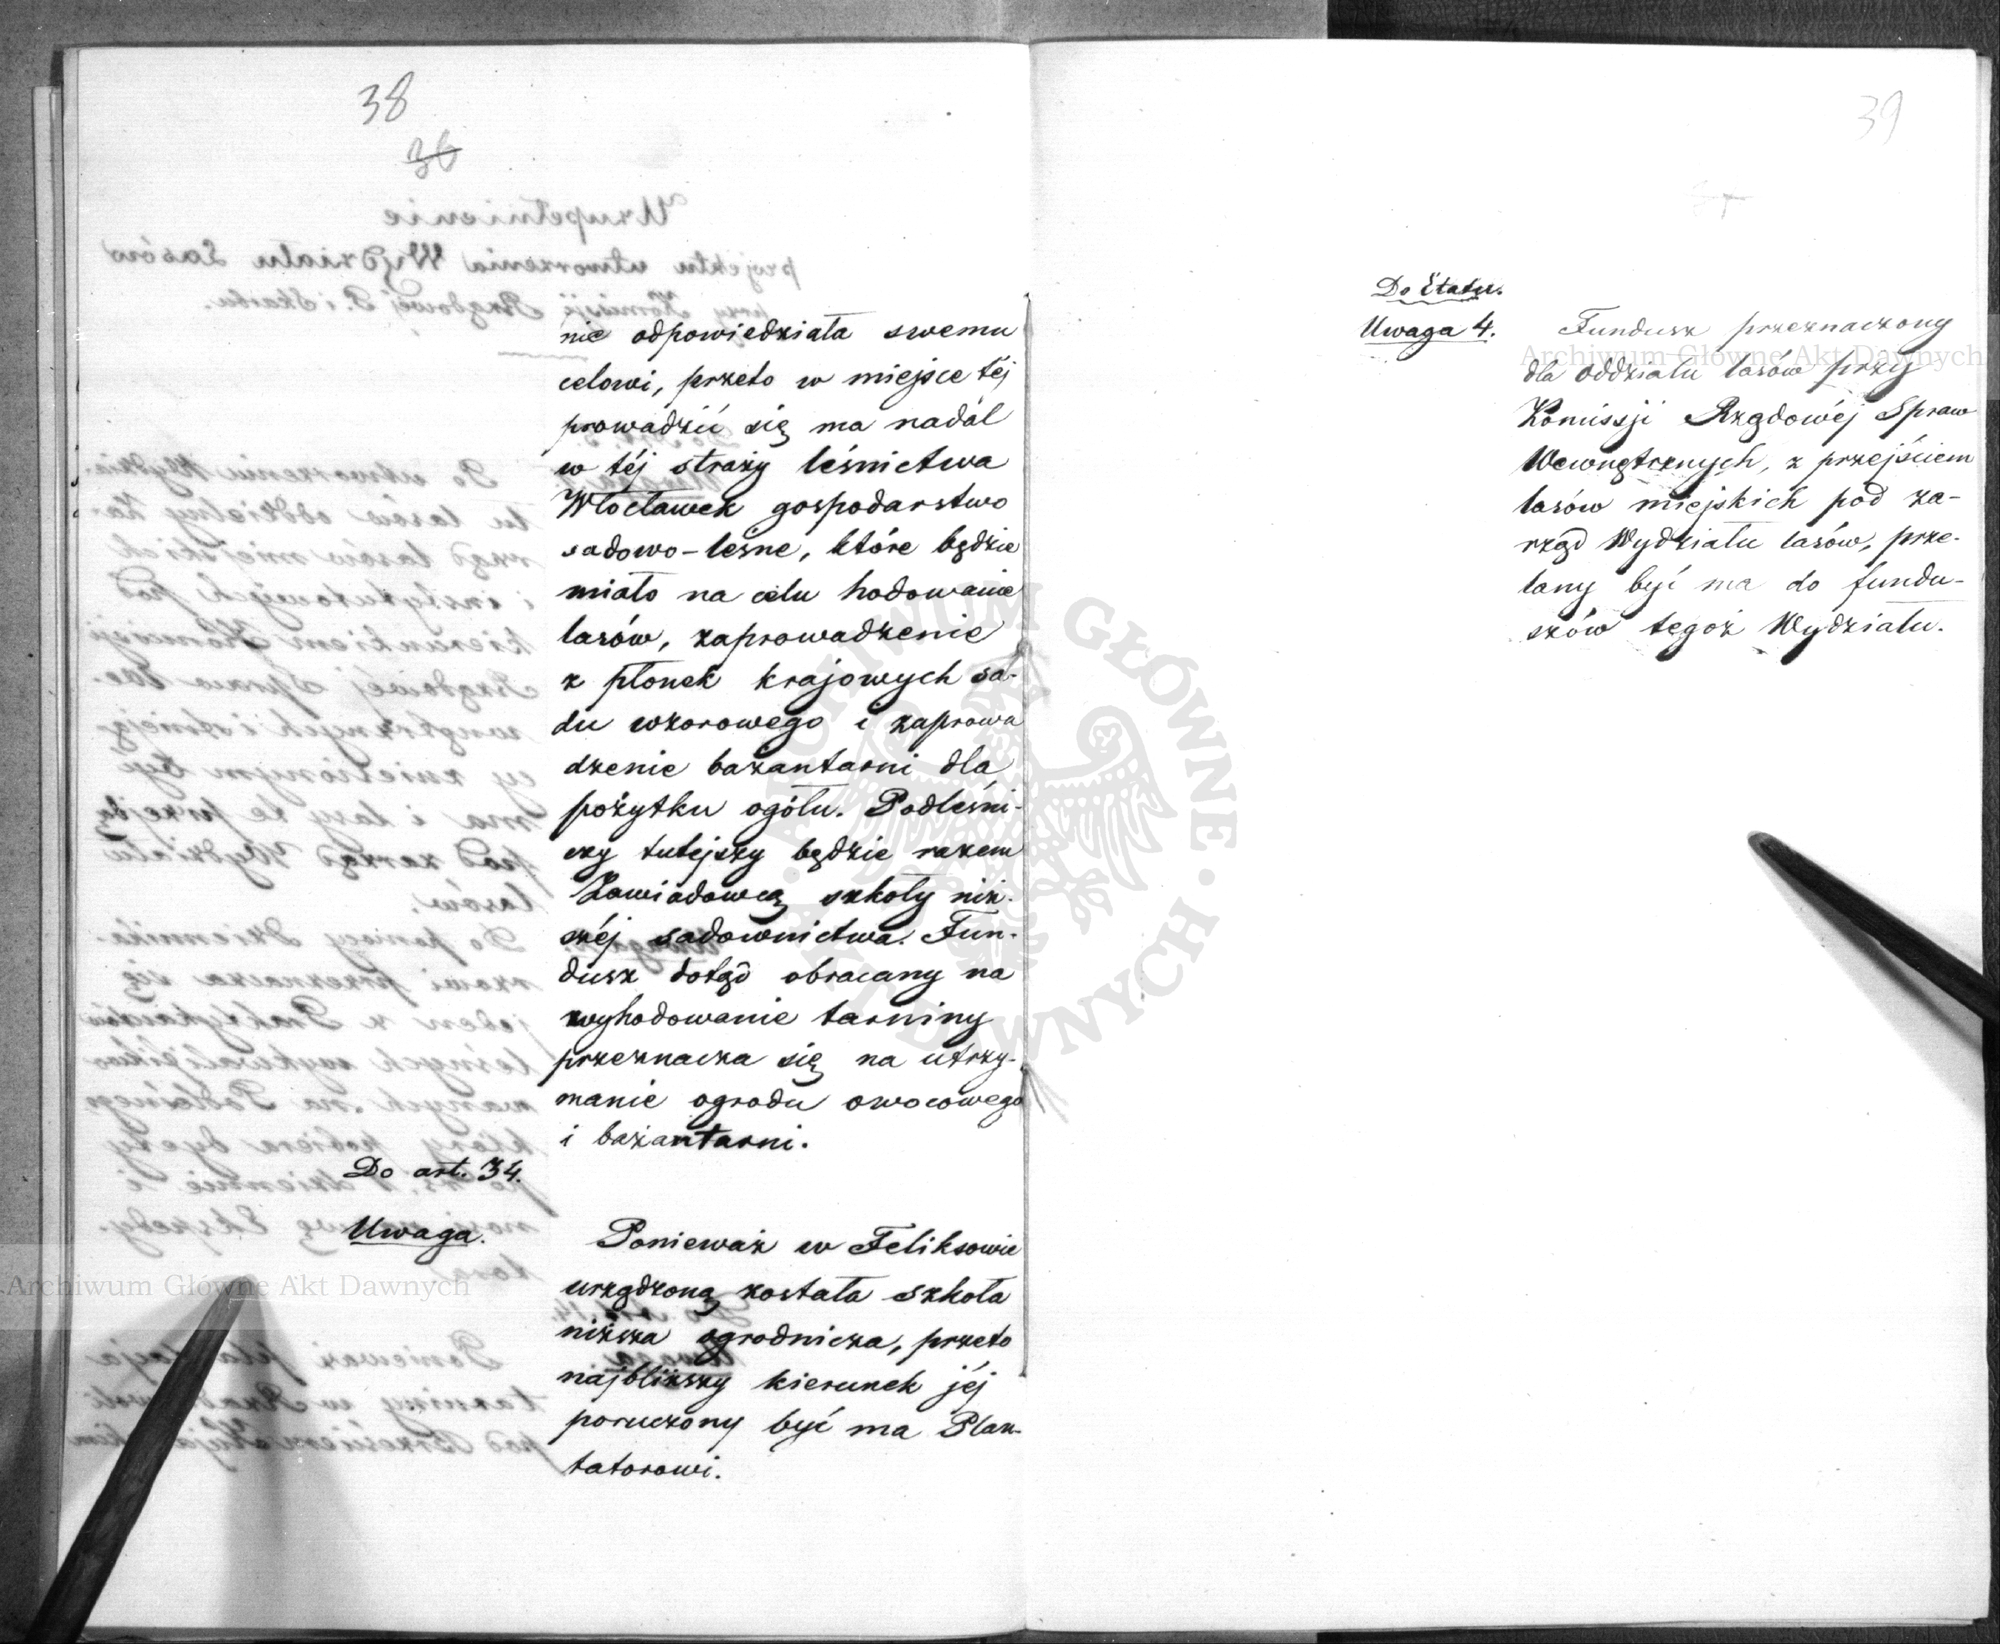 38
36
nie odpowiedziała swemu
celowi, przeto w miejsce téj
prowadzić się ma nadal
w téj straży leśnictwa
Włocławek gospodarstwo
sadowo-leśne, które będzie
miało na celu hodowanie
lasów, zaprowadzenie
z płonek krajowych sa-
du wzorowego i zaprowa
dzenie bażantarni dla
pożytku ogółu. Podleśni-
czy tutejszy będzie razem
Zawiadowcą szkoły niż-
széj sadownictwa. Fun-
dusz dotąd obracany na
wyhodowanie tarniny
przeznacza się na utrzy-
manie ogrodu owocowego
i bażantarni.
Do art. 34.
Uwaga.
Ponieważ w Feliksowie
urządzoną została szkoła
niższa ogrodnicza, przeto
najbliższy kierunek jéj
poruczony być ma Plan-
tatorowi.
Archiwum Główne Akt Dawnych
39
37
Do Etatu.
Uwaga 4.
Fundusz przeznaczony
dla Oddziału lasów przy
Komissji Rządowéj Spraw
Wewnętrznych, z przejściem
lasów miejskich pod za-
rząd Wydziału lasów, prze-
lany być ma do fundu-
szów tegoż Wydziału.
Archiwum Główne Akt Dawnych
ARCHIWUM GŁÓWNE · AKT DAWNYCH ·